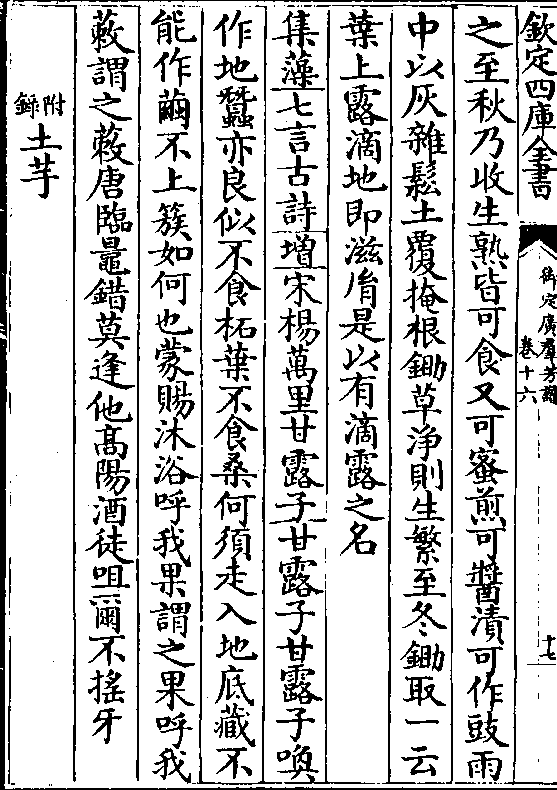 欽定四庫全書
御定廣羣芳譜
卷十六
十七
之至秋乃收生熟皆可食又可蜜煎可醬漬可作豉雨
中以灰雜鬆土覆掩根鋤草淨則生繁至冬鋤取一云
葉上露滴地即滋胤是以有滴露之名
集藻七言古詩增宋楊萬里甘露子甘露子甘露子喚
作地蠶亦良似不食柘葉不食桑何須走入地底藏不
能作繭不上簇如何也蒙賜沐浴呼我果謂之果呼我
蔌謂之蔌唐臨鼂錯莫逢他髙陽酒徒咀爾不搖牙
附錄土芋